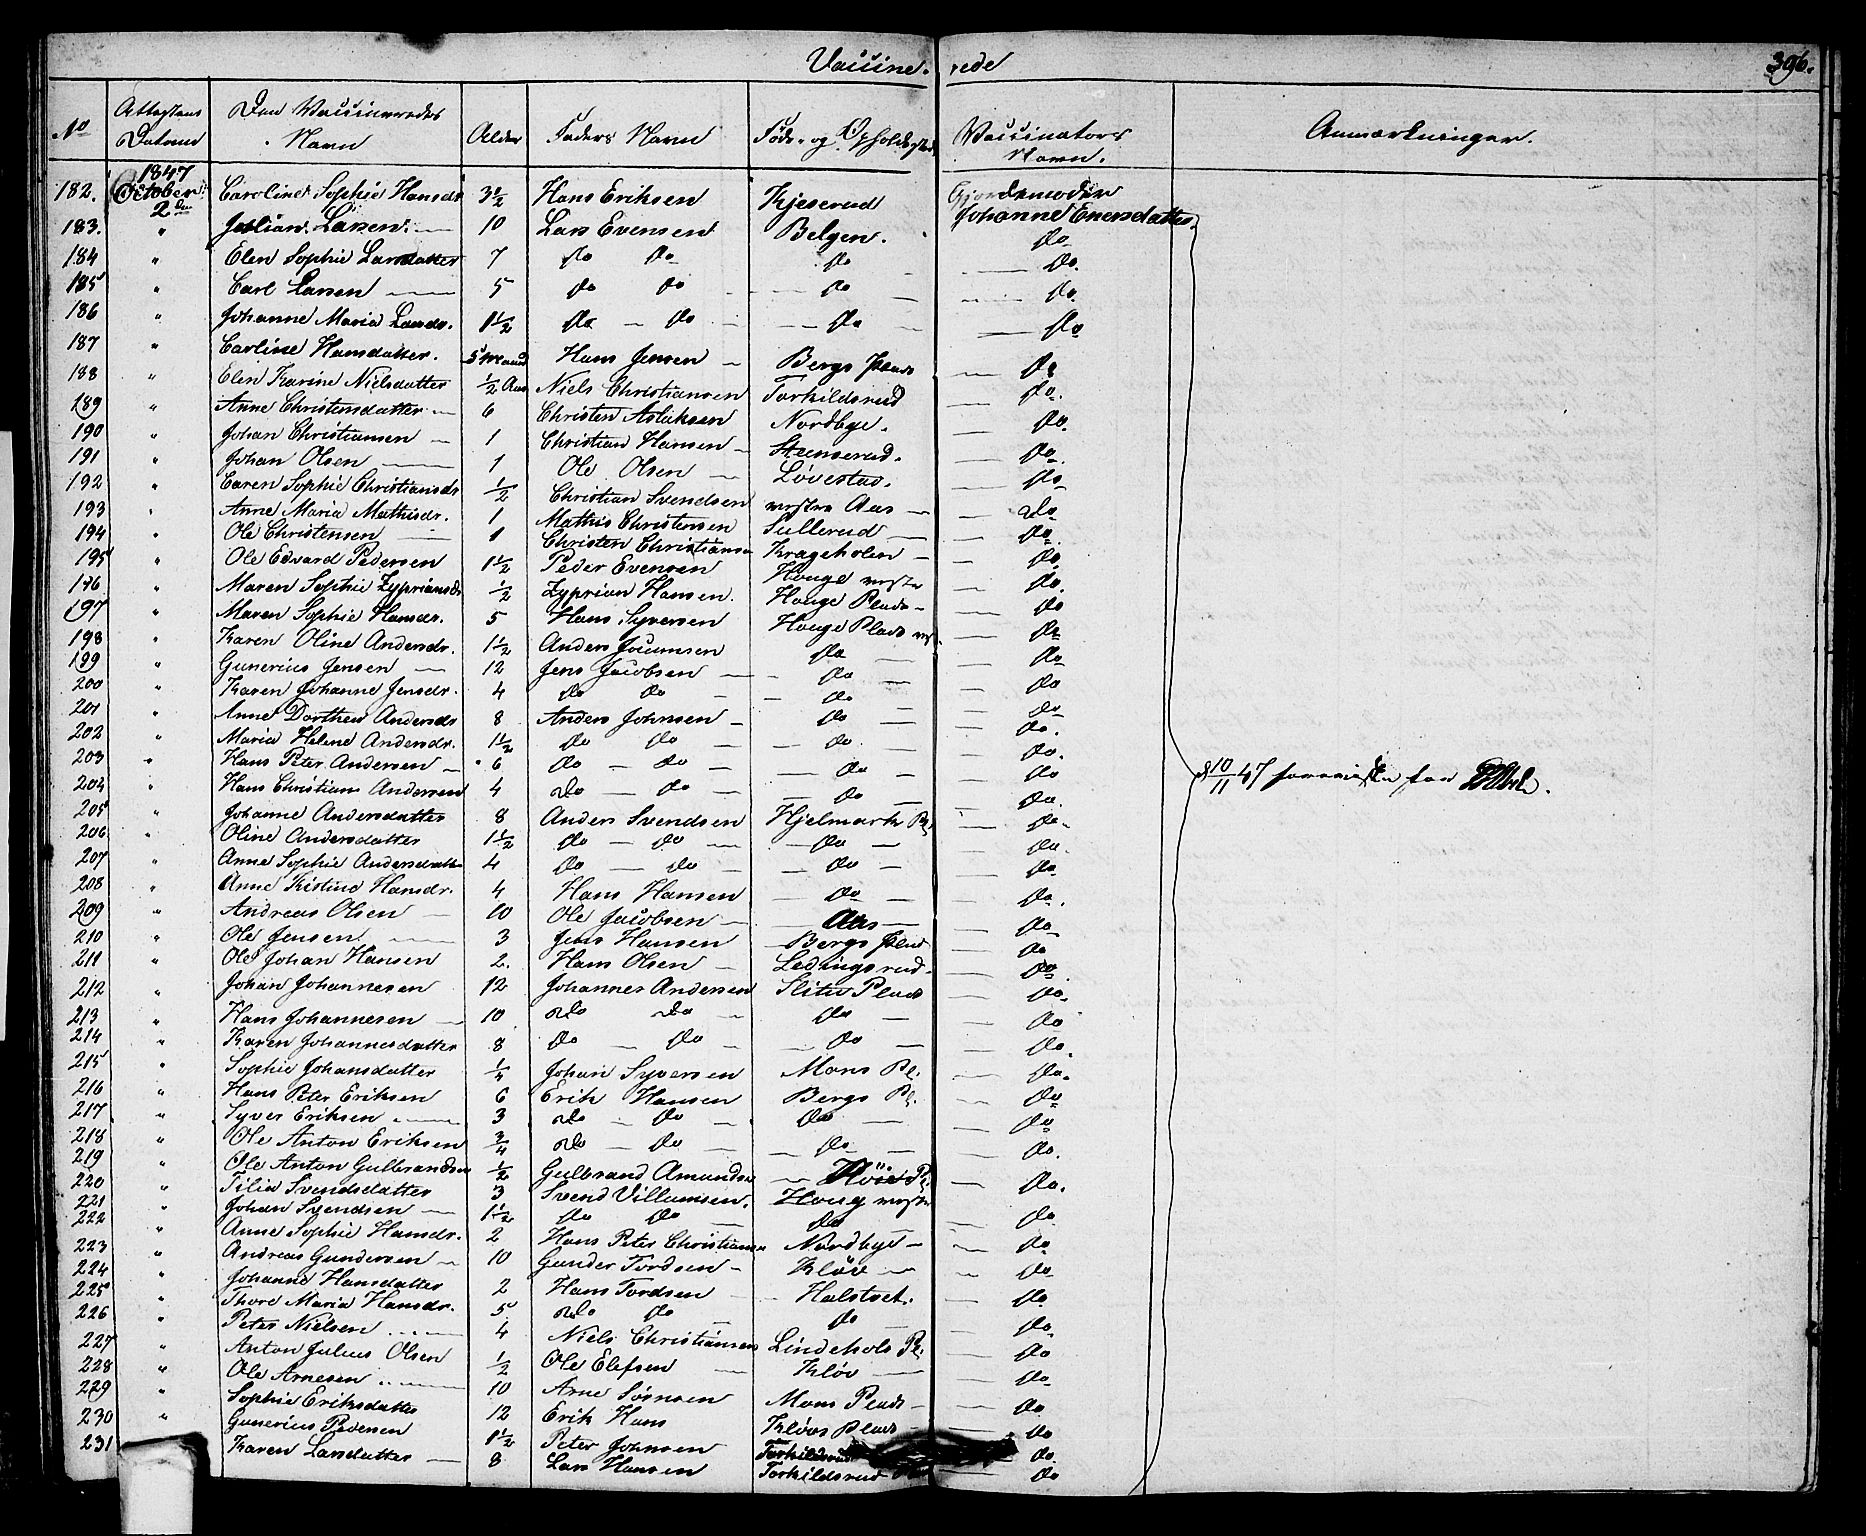 Vaccine- rede 396.
No Attestens Datum Den Vaccineredes Navn Alder Faders Navn Føde- og Opholdssted Vaccinators Navn. Anmærkninger.
1847
182. October 2den Caroline Sophie Hansdr 3½ Hans Eriksen Kjeserud Gjordemoder Johanne Enersdatter
183. " Julian Larsen 10 Lars Evensen Belgen. Do
184 " Elen Sophie Larsdatter 7 Do Do Do Do.
185 " Carl Larsen 5 Do Do Do Do.
186 " Johanne Maria Larsdr. 1½ Do Do Do Do
187 " Carline Hansdatter. 5 Maand Hans Jensen Bergs Plads Do
188 " Elen Karine Nielsdatter ½ Aar Niels Christiansen Torkildsrud Do.
189 " Anne Christensdatter 6 Christen Aslaksen Nordbye. Do.
190 " Johan Christiansen 1 Christian Hansen Stenserud. Do.
191 " Johan Olsen 1 Ole Olsen Løvestad. Do
192 " Caren Sophie Christiansdr ½ Christian Svendsen vestre Aas Do
193 " Anne Maria Mathisdr. 1 Mathis Christensen Sullerud Do.
194 " Ole Christensen 1 Christen Christiansen Krageholen Do
195 " Ole Edvard Pedersen 1½ Peder Evensen Houge vestre Do.
196 " Maren Sophie Zypriansdr ½ Zyprian Hansen. Houge Plads Do
197 " Maren Sophie Hansdr. 5 Hans Syversen Houge Plads Do
198 " Karen Oline Andersdr. 1½ Anders Do Do
199 " Gunerius Jensen 12 Jens Jacobsen Do Do
200 " Karen Johanne Jensdr. 4 Do Do Do Do
201 " Anne Dorthea Andersdr 8 Anders Johnsen Do Do.
202 " Maria Helene Andersdr. 1½ Do Do Do Do.
203 " Hans Peter Andersen 6 Do Do Do Do
204 " Hans Christian Andersen 4 Do Do Do Do. d 10/11 47
205 " Johanne Andersdatter 8 Anders Svendsen Hjelmark Pl. Do.
206 " Oline Andersdatter 1½ Do Do Do Do.
207 " Anne Sophie Andersdatter 4 Do Do Do Do
208 " Anne Kistine Hansdr. 4 Hans Hansen Do Do.
209 " Andreas Olsen 10 Ole Jacobsen Aas Do
210 " Ole Jensen 3 Jens Hansen Bergs Plad Do
211 " Ole Johan Hansen 2. Hans Olsen Ledingsrud Do.
212 " Johan Johannesen 12 Johannes Andersen Slitu Plads Do.
213 " Hans Johannesen 10 Do Do Do Do
214 " Karen Johannesdatter 8 Do Do Do Do.
215 " Sophie Johansdatter ¼ Johan Syversen Mons Pl. Do.
216 " Hans Peter Eriksen 6 Erik Hansen Bergs Pl. Do
217 " Syver Eriksen 3 Do Do Do Do
218 " Ole Anton Eriksen ¾ Do Do Do Do.
219 " Ole Anton Gulbrandsen ½ Gulbrand Amundsen Pl. Do.
220 " Tilia Svendsdatter 3 Svend Villumsen. Houg vestre
221 " Johan Svendsen 1½ Do Do Do Do
222 " Anne Sophie Hansdr. 2 Hans Peter Christiansen Nordbye Do
223 " Andreas Gundersen 10 Gunder Tordsen Kløv Do
224 " Johanne Hansdatter 2 Hans Tordsen Halstvet. Do
225 " Thore Maria Hansdr. 5 Do Do Do Do
226 " Peter Nielsen 4 Niels Christiansen Lindehols Pl. Do
227 " Anton Julius Olsen ½ Ole Elefsen Kløv Do
228 " Ole Arnesen 10 Arne Sørnsen Mons Plads Do
229 " Sophie Eriksdatter 12 Erik Hans Kløvs Plads Do
230 " Gunerius Pedersen 1½ Peter Johnsen Torkildsrud Do
231 Karen Larsdatter 8 Lars Hansen Torkildsrud Do